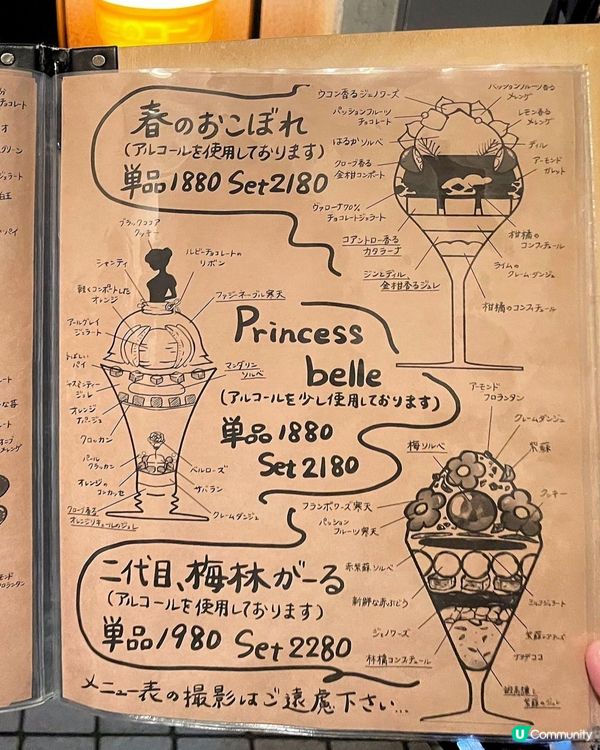 春のおこぼれ
(アルコールを使用しております)
単品1880 Set2180
ウコン香るジェノワーズ
パッションフルーツ
チョコレート
はるかソルベ
クローブ香る
金柑コンポート
ヴァローナ70%
チョコレートジェラート
コアントロー香る
カタラーナ
ジンとディル、
金柑香るジュレ
パッションフルーツ香る
メレンゲ
レモン香る
メレンゲ
ディル
アーモンド
ガレット
柑橘の
コンフィチュール
ライムの
クレームダンジュ
柑橘のコンフィチュール
Princess
belle
(アルコールを少し使用しております)
単品1880
Set2180
ブラックココア
クッキー
シャンティ
ルビーチョコレートの
リボン
軽くコンポートした
オレンジ
ファジーネーブル寒天
アールグレイ
ジェラート
パイ
マンダリン
ソルベ
ジャスミンティー
ジュレ
オレンジ
クロッカン
パール
クラッカン
ベルローズ
オレンジの
コンカッセ
サバラン
クローブ香る
オレンジリキュールのジュレ
クレームダンジュ
二代目、梅林がーる
(アルコールを使用しております)
単品1980 Set2280
アーモンド
フロランタン
クレームダンジュ
梅ソルベ
紫蘇
クッキー
フランボワーズ寒天
パッション
フルーツ寒天
赤紫蘇ソルベ
新鮮な赤ぶどう
ミルクジェラート
ジェノワーズ
ナタデココ
林檎コンフィチュール
紫蘇のジュレ
メニュー表の撮影はご遠慮下さい...
U Community